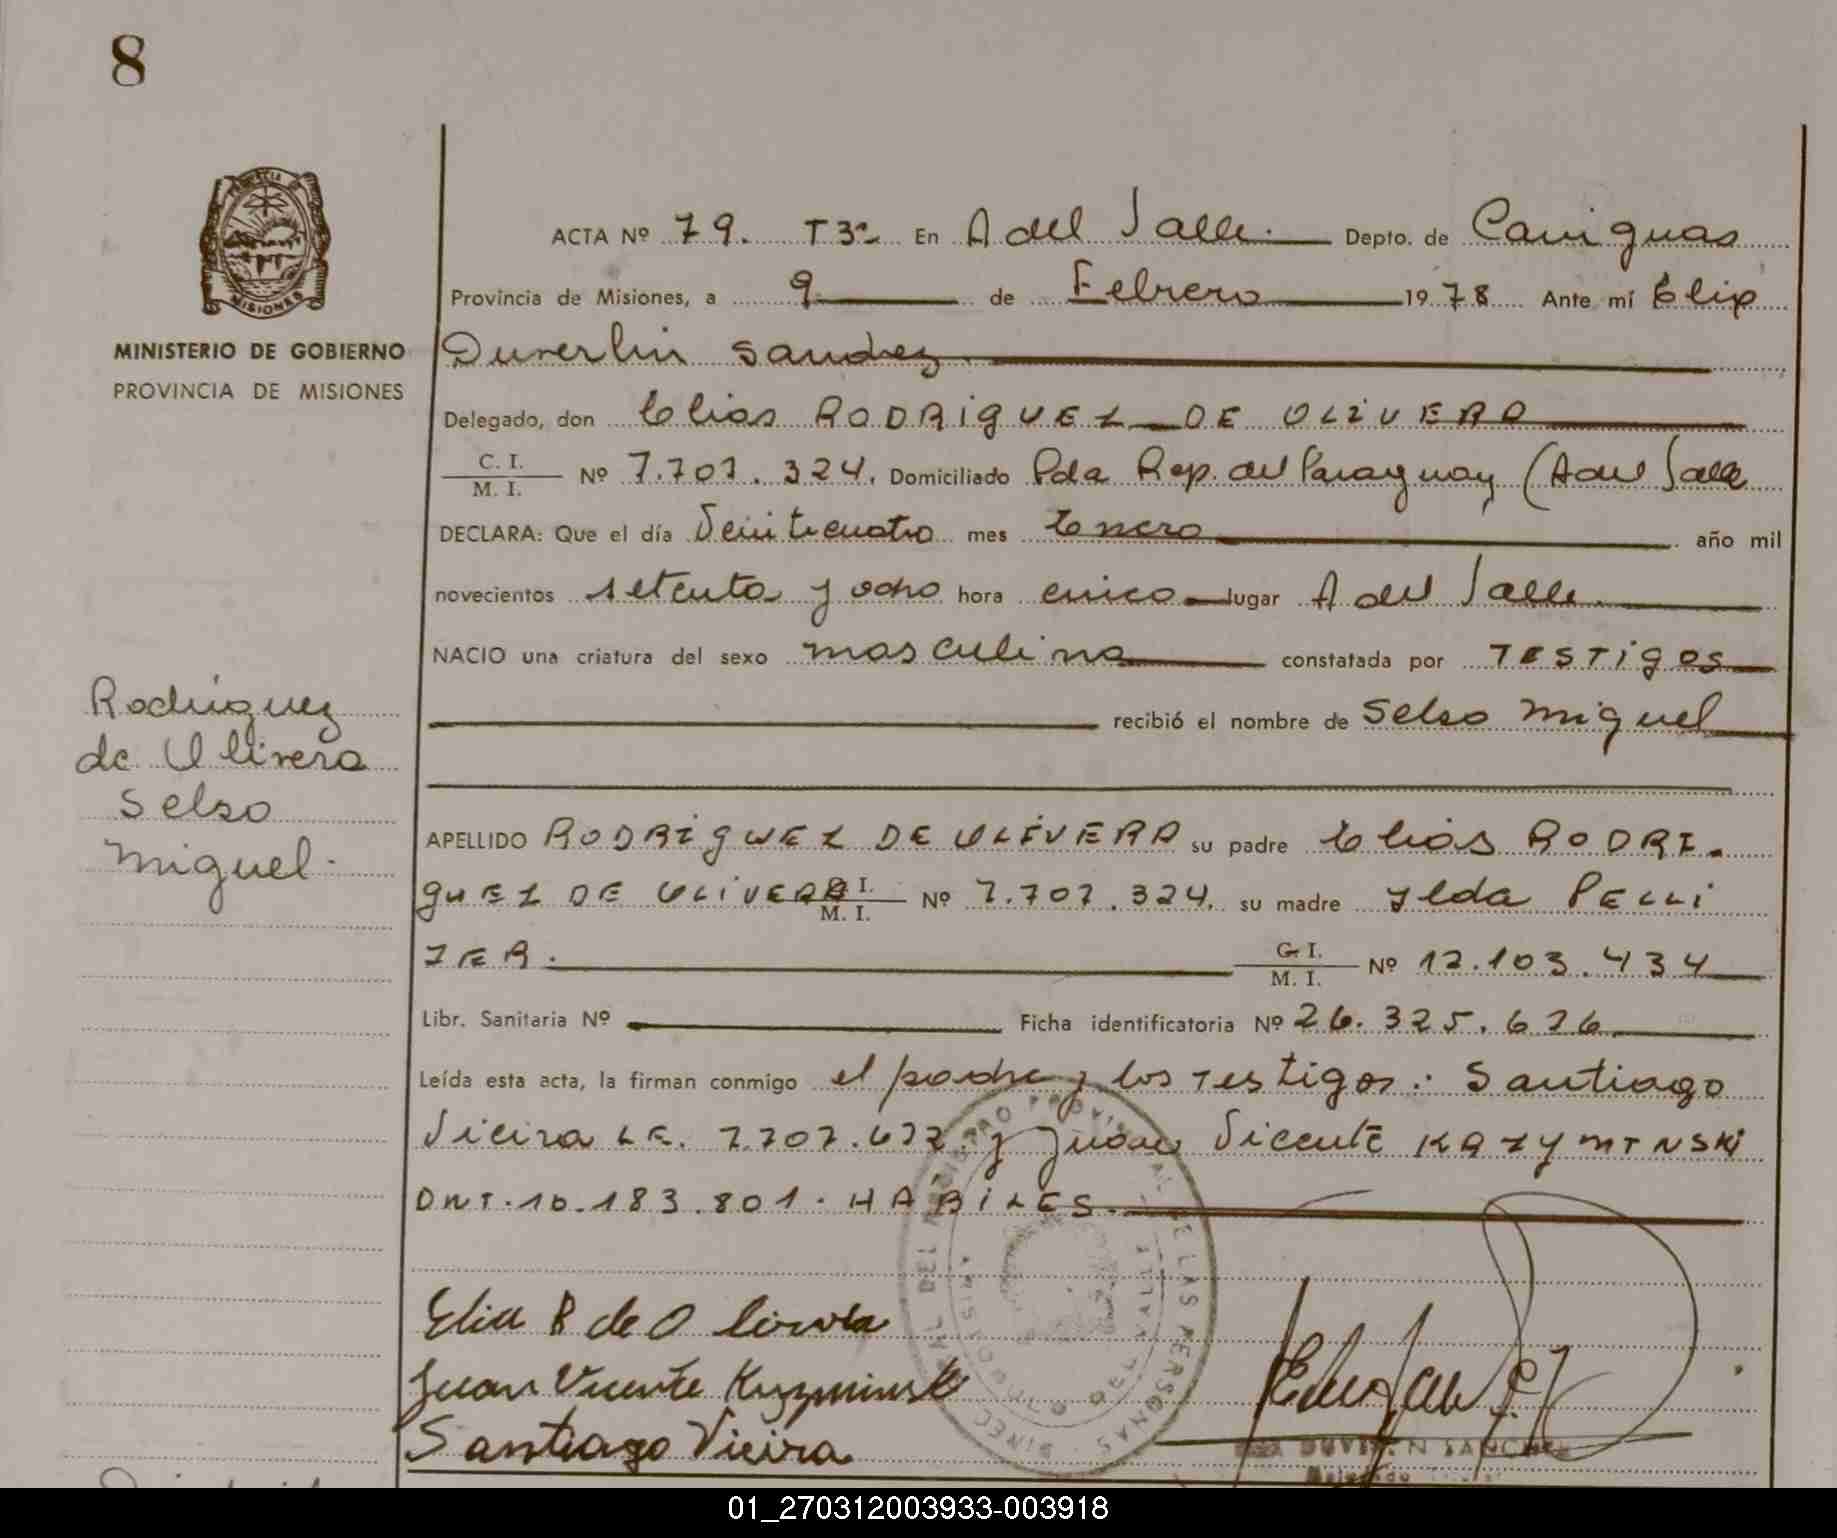 8
PROVINCIA DE
MISIONES
MINISTERIO DE GOBIERNO
PROVINCIA DE MISIONES
ACTA Nº 79. T3º En A del Valle. Depto. de Cainguas
Provincia de Misiones, a 9 de Febrero 1978 Ante mí
Duverlin Sanchez.
Delegado, don Elias RODRIGUEZ DE OLIVERA
C. I.
M. I. Nº 7.707.324. Domiciliado Pda Rep. del Paraguay (A del Valle
DECLARA: Que el día Veinticuatro mes Enero año mil
novecientos setenta y ocho hora cinco lugar A del Valle.
NACIO una criatura del sexo masculino constatada por TESTigos
recibió el nombre de Selso Miguel
Rodriguez
de Olivera
Selso
Miguel.
APELLIDO RODRIGUEZ DE OLIVERA su padre Elias RODRI.
GUEZ DE OLIVERA C. I.
M. I. Nº 7.707.324. su madre Ylda PELLI
ZER. C. I.
M. I. Nº 12.103.434
Libr. Sanitaria Nº Ficha identificatoria Nº 26.325.626
Leída esta acta, la firman conmigo el padre y los testigos: Santiago
Vieira LE. 7.707.672 y Juan Vicente KAZYMINSKi
DNI. 10.183.801. HABILES.
Elia R de Olivera
Juan Vicente Kuzminski
Santiago Vieira
DEL REGISTRO PROVINCIAL DE LAS PERSONAS
DEL VALLE
DUVERLIN SANCHEZ
Delegado
01_270312003933-003918